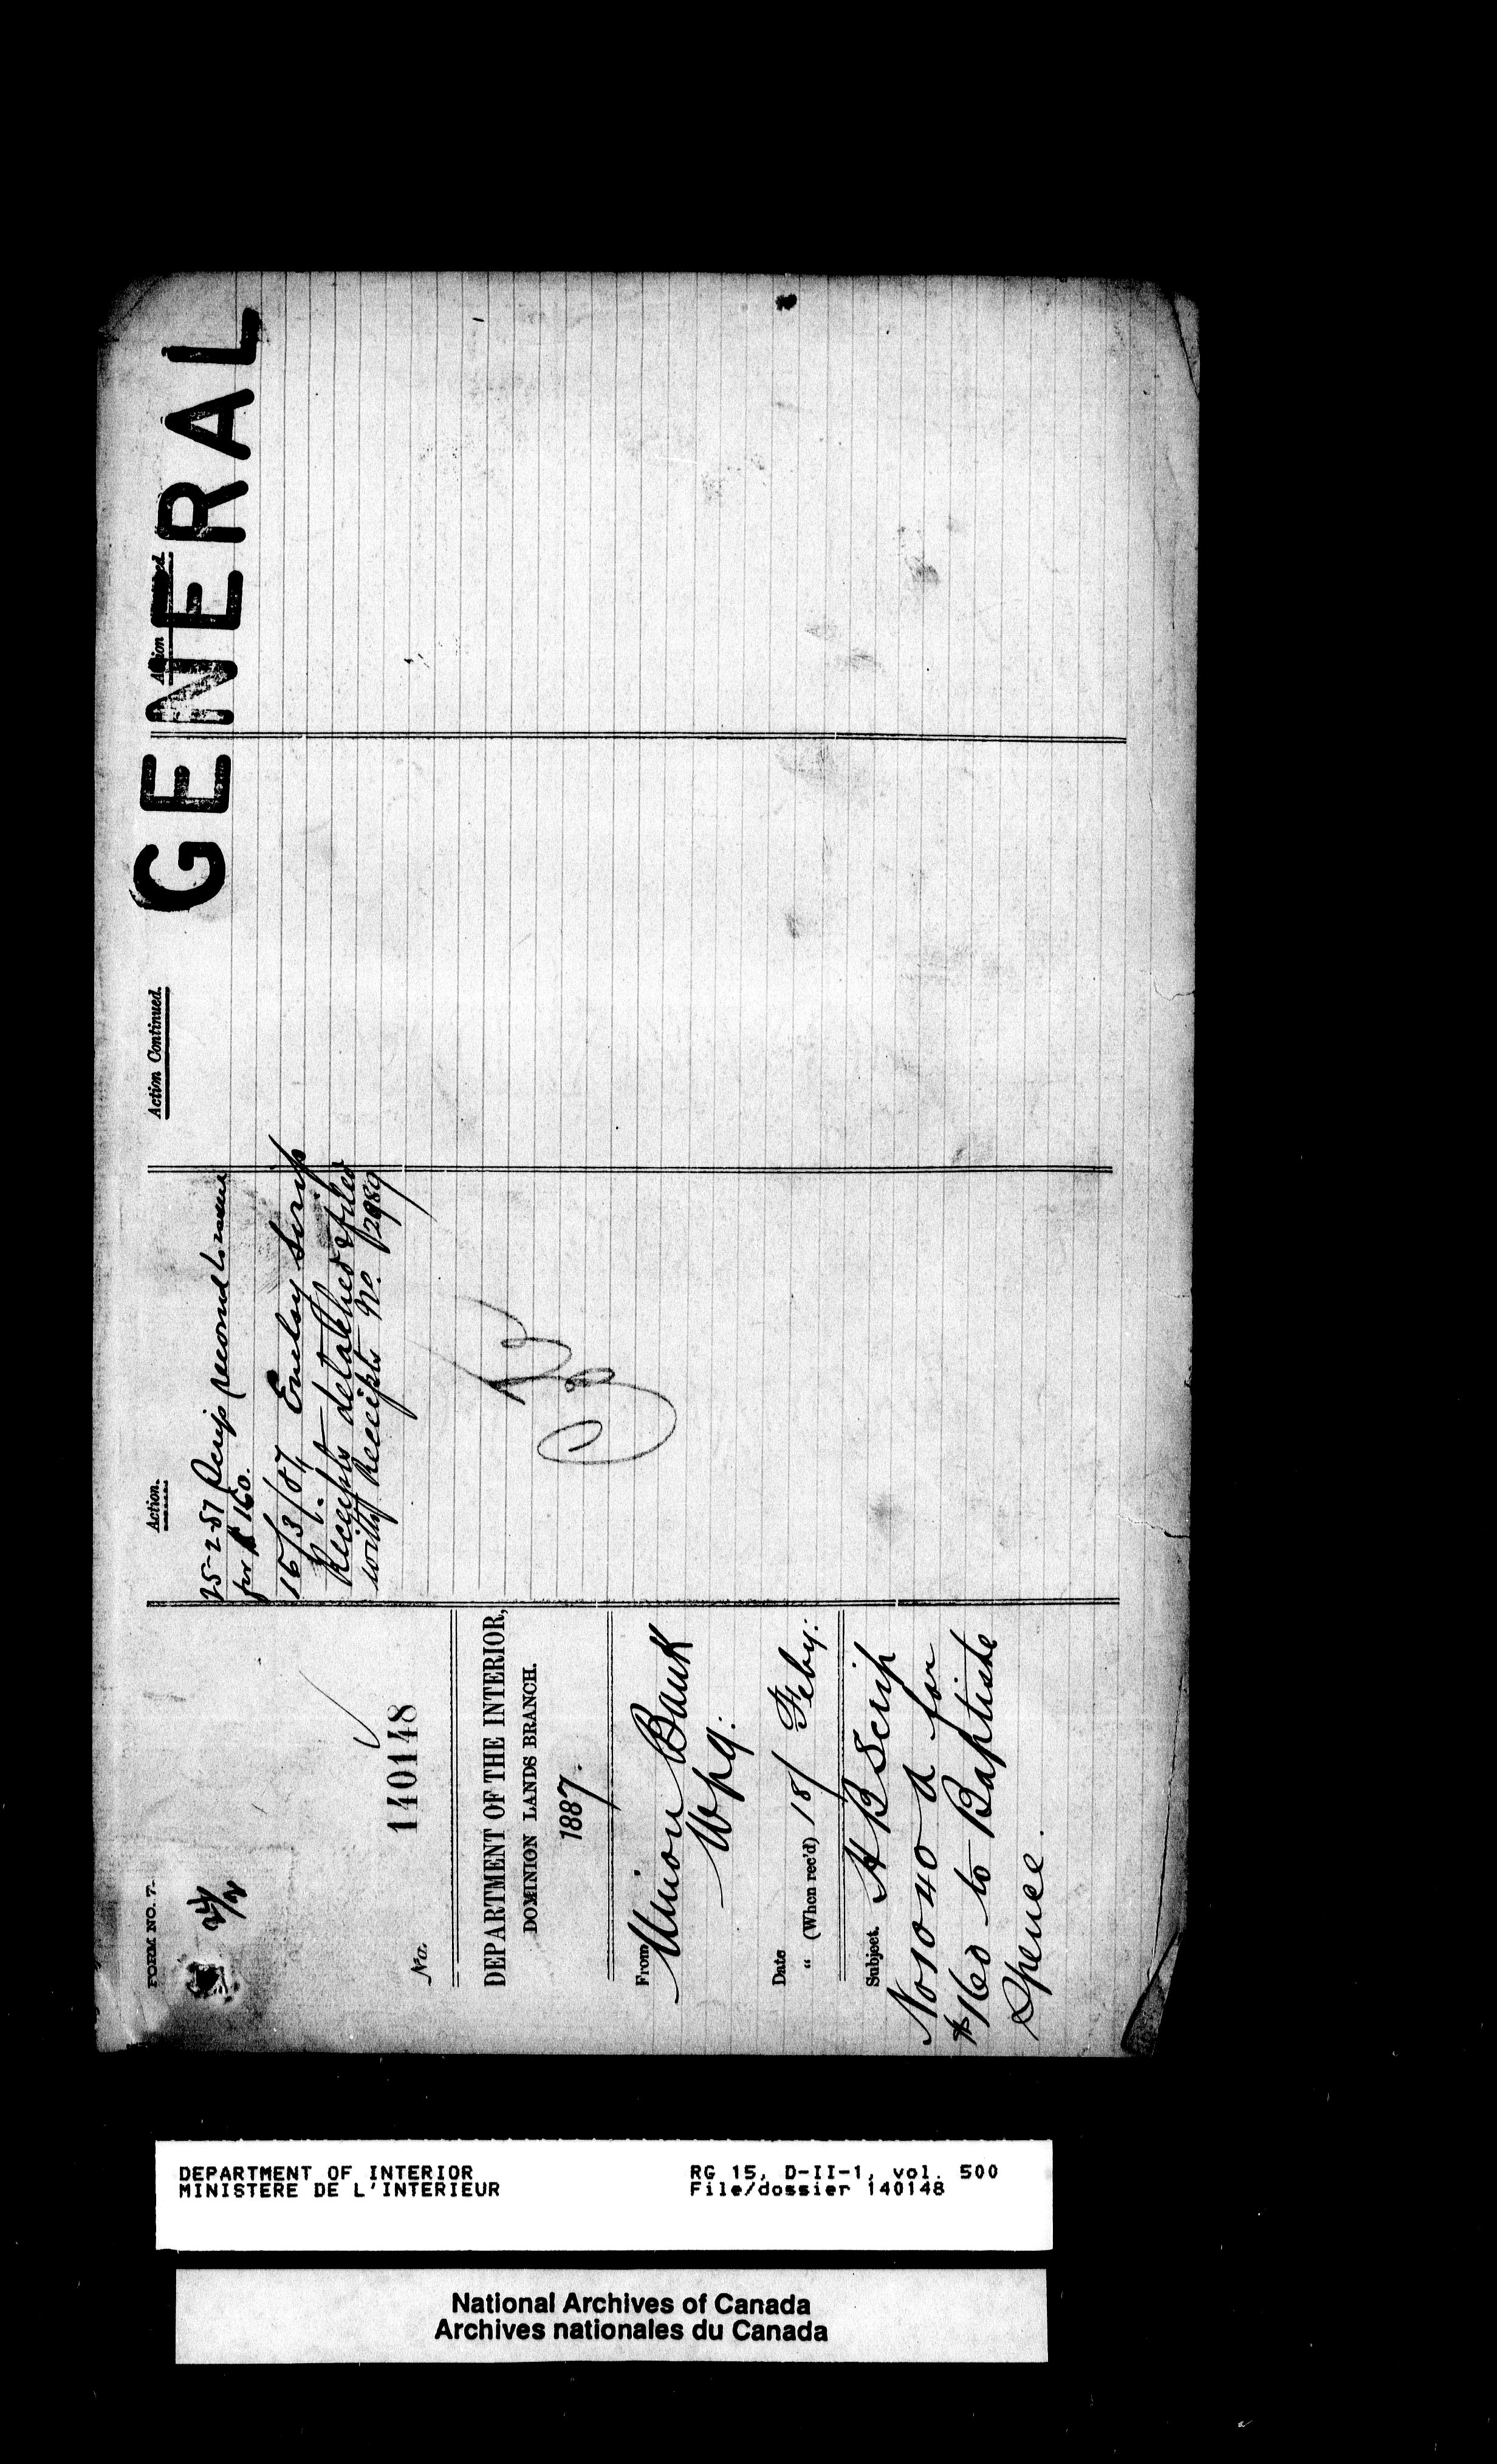 FORM NO. 7-
24/2
No. 140148
DEPARTMENT OF THE INTERIOR,
DOMINION LANDS BRANCH.
1887.
From Union Bank
Wpg.
Date
" (When rec'd) 18/ Feby.
Subject. H B Scrip
No 1040 A for
$160 to Baptiste
Spence.
Action.
25-2-87 Scrip recomd to issue
for $160.
16/3/87 Enclos Scrip
Receipts detached & filed
with Receipts No. 12989
Action Continued.
Action Continued.
GENERAL
DEPARTMENT OF INTERIOR
MINISTERE DE L'INTERIEUR
RG 15, D-II-1, vol. 500
File/dossier 140148
National Archives of Canada
Archives nationales du Canada